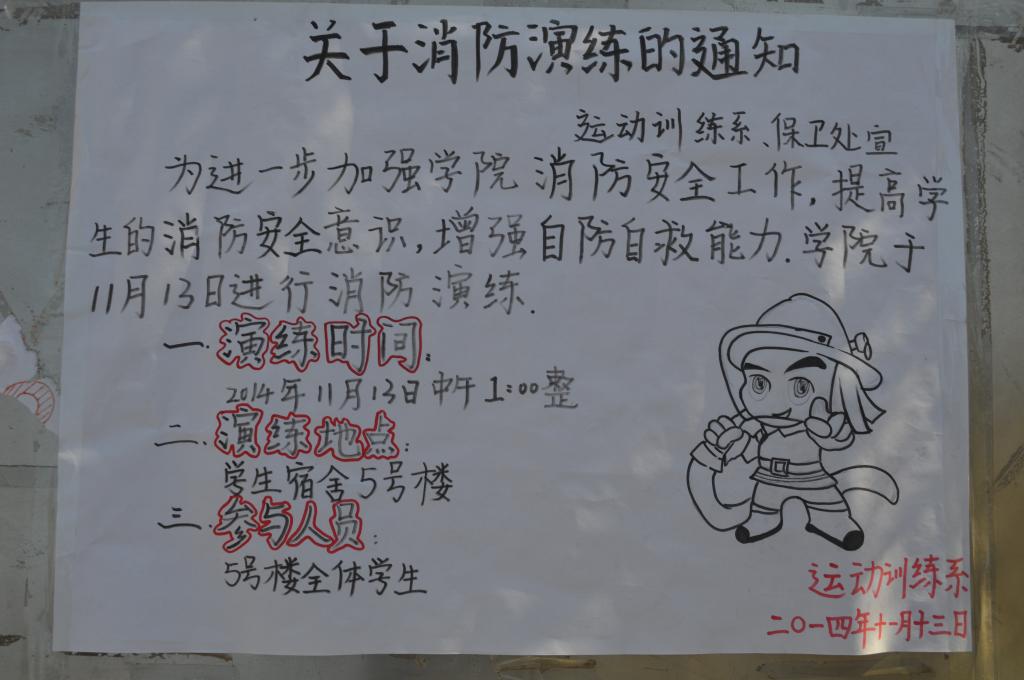 关于消防演练的通知
运动训练系、保卫处宣
为进一步加强学院消防安全工作,提高学
生的消防安全意识,增强自防自救能力.学院于
11月13日进行消防演练.
一.演练时间:
2014年11月13日中午1:00整
二.演练地点:
学生宿舍5号楼
三.参与人员:
5号楼全体学生
运动训练系
二〇一四年十一月十三日